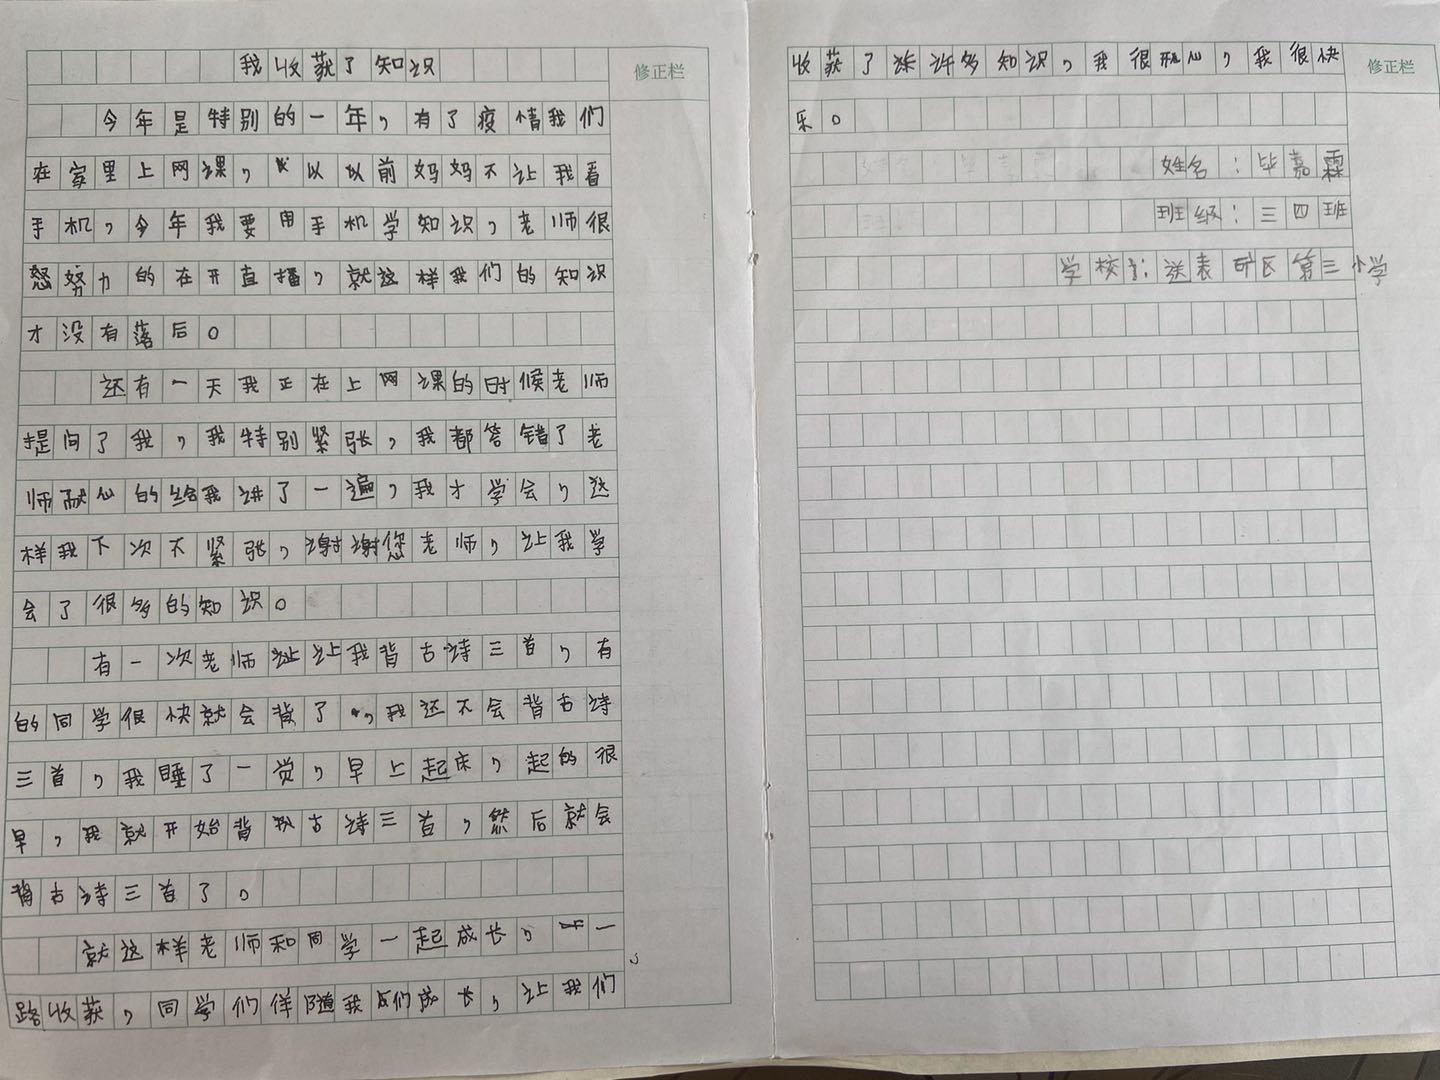 我收获了知识
修正栏
今年是特别的一年，有了疫情我们
在家里上网课，以以前妈妈不让我看
手机，今年我要用手机学知识，老师很
努力的在开直播，就这样我们的知识
才没有落后。
还有一天我正在上网课的时候老师
提问了我，我特别紧张，我都答错了老
师耐心的给我讲了一遍，我才学会，这
样我下次不紧张，谢谢您老师，让我学
会了很多的知识。
有一次老师让我背古诗三首，有
的同学很快就会背了，我还不会背古诗
三首，我睡了一觉，早上起床，起的很
早，我就开始背古诗三首，然后就会
背古诗三首了。
就这样老师和同学一起成长，一
路收获，同学们伴随我们成长，让我们
收获了许多知识，我很开心，我很快
修正栏
乐。
姓名：毕嘉霖
班级：三四班
学校：送表矿区第三小学